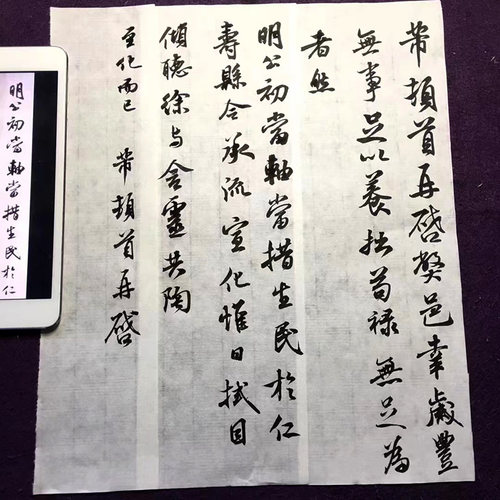 芾頓首再啓弊邑幸歲豐
無事足以養拙苟祿無足為
者然
明公初當軸當措生民於仁
壽縣令承流宣化惟日拭目
傾聽徐与含靈共陶
至化而已 芾頓首再啓
明公初當軸當措生民於仁